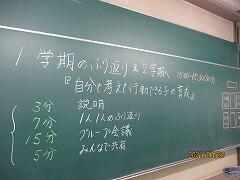 1学期のふり返り & 2学期へ
15:00〜15:30(30分)
『自分で考えて行動できる子の育成』
3分 説明
7分 1人1人のふり返り
15分 グループ会議
5分 みんなで共有